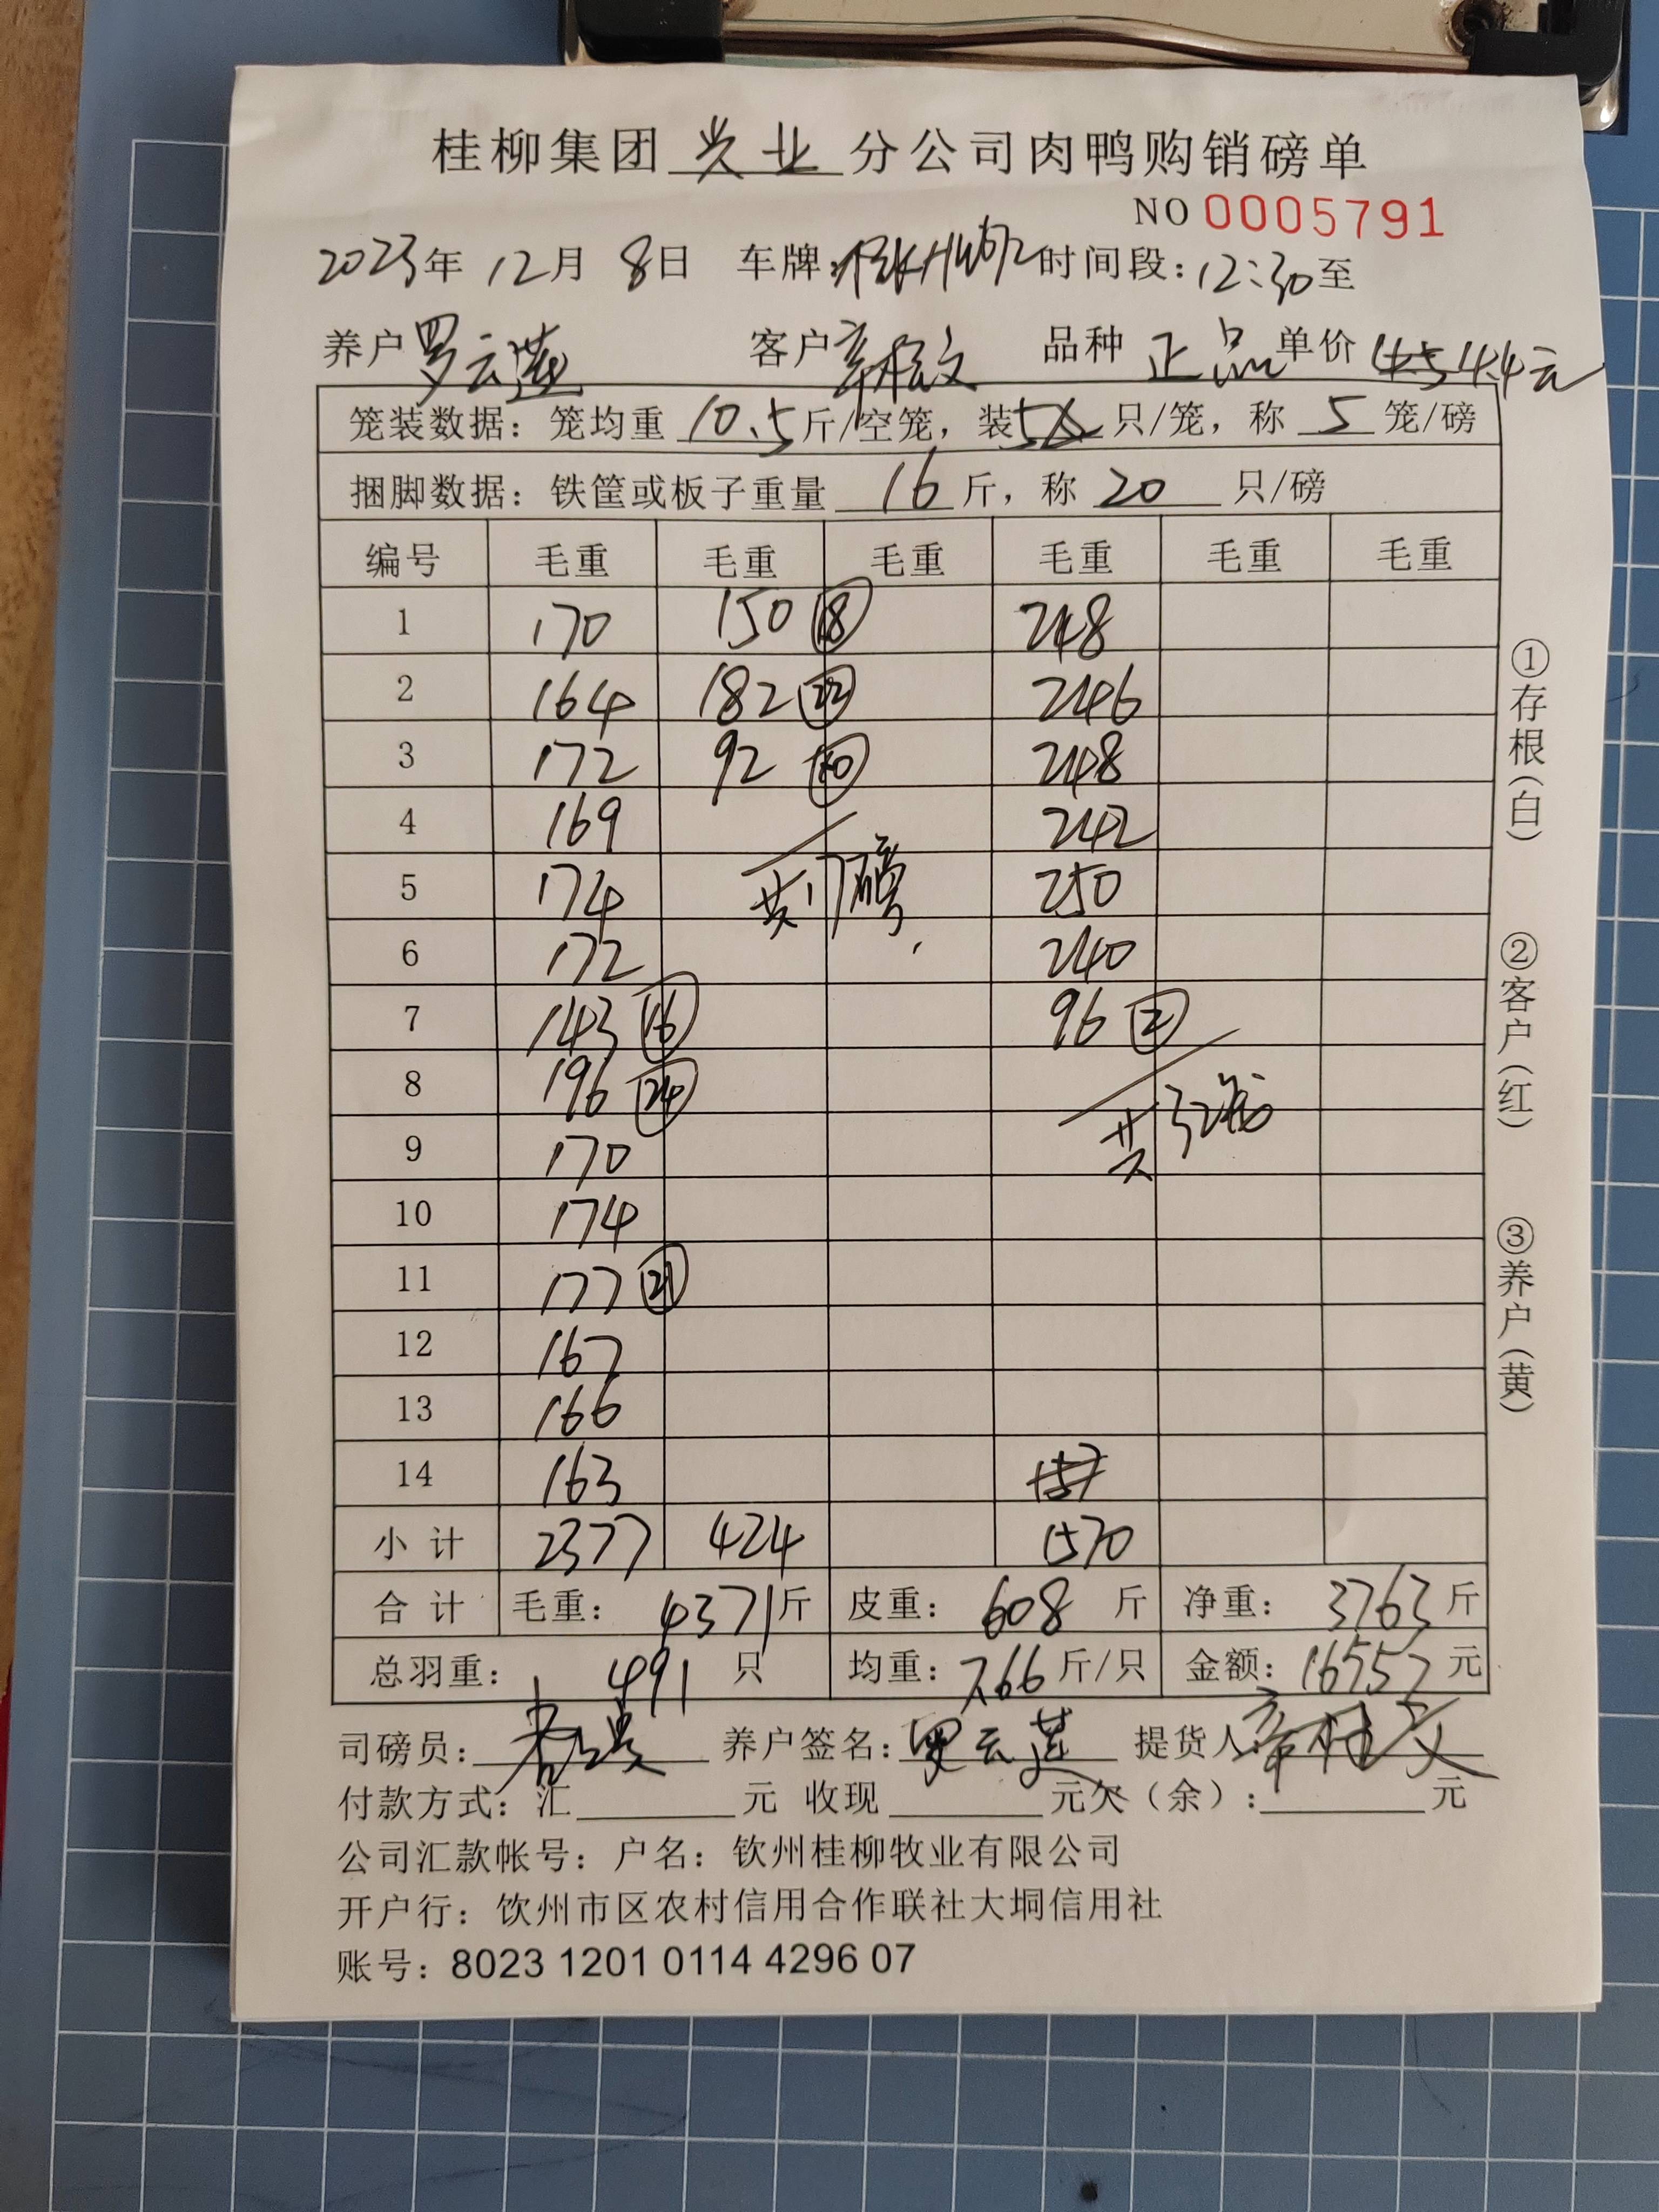 桂柳集团 兴业 分公司肉鸭购销磅单
NO 0005791
2023年 12月 8日 车牌: 时间段: 12:30至
养户 罗云莲 客户 辛桂文 品种 正品 单价 4.5 4.4元
笼装数据: 笼均重 10.5斤/空笼, 装5 只/笼, 称 5 笼/磅
捆脚数据: 铁筐或板子重量 16 斤, 称 20 只/磅
编号 毛重 毛重 毛重 毛重 毛重 毛重
1 170 150 18 248
2 164 182 22 246
3 172 92 10 248
4 169 242
5 174 共17磅 250
6 172 240
7 143 16 96 2
8 196 24 共32笼
9 170
10 174
11 177 21
12 167
13 166
14 163 157
小计 2377 424 1570
合计 毛重: 4371斤 皮重: 608 斤 净重: 3763斤
总羽重: 491 只 均重: 7.66 斤/只 金额: 16557 元
司磅员: 养户签名: 罗云莲 提货人: 辛桂文
付款方式: 汇 元 收现 元欠(余): 元
公司汇款帐号: 户名: 钦州桂柳牧业有限公司
开户行: 饮州市区农村信用合作联社大垌信用社
账号: 8023 1201 0114 4296 07
①存根(白)
②客户(红)
③养户(黄)